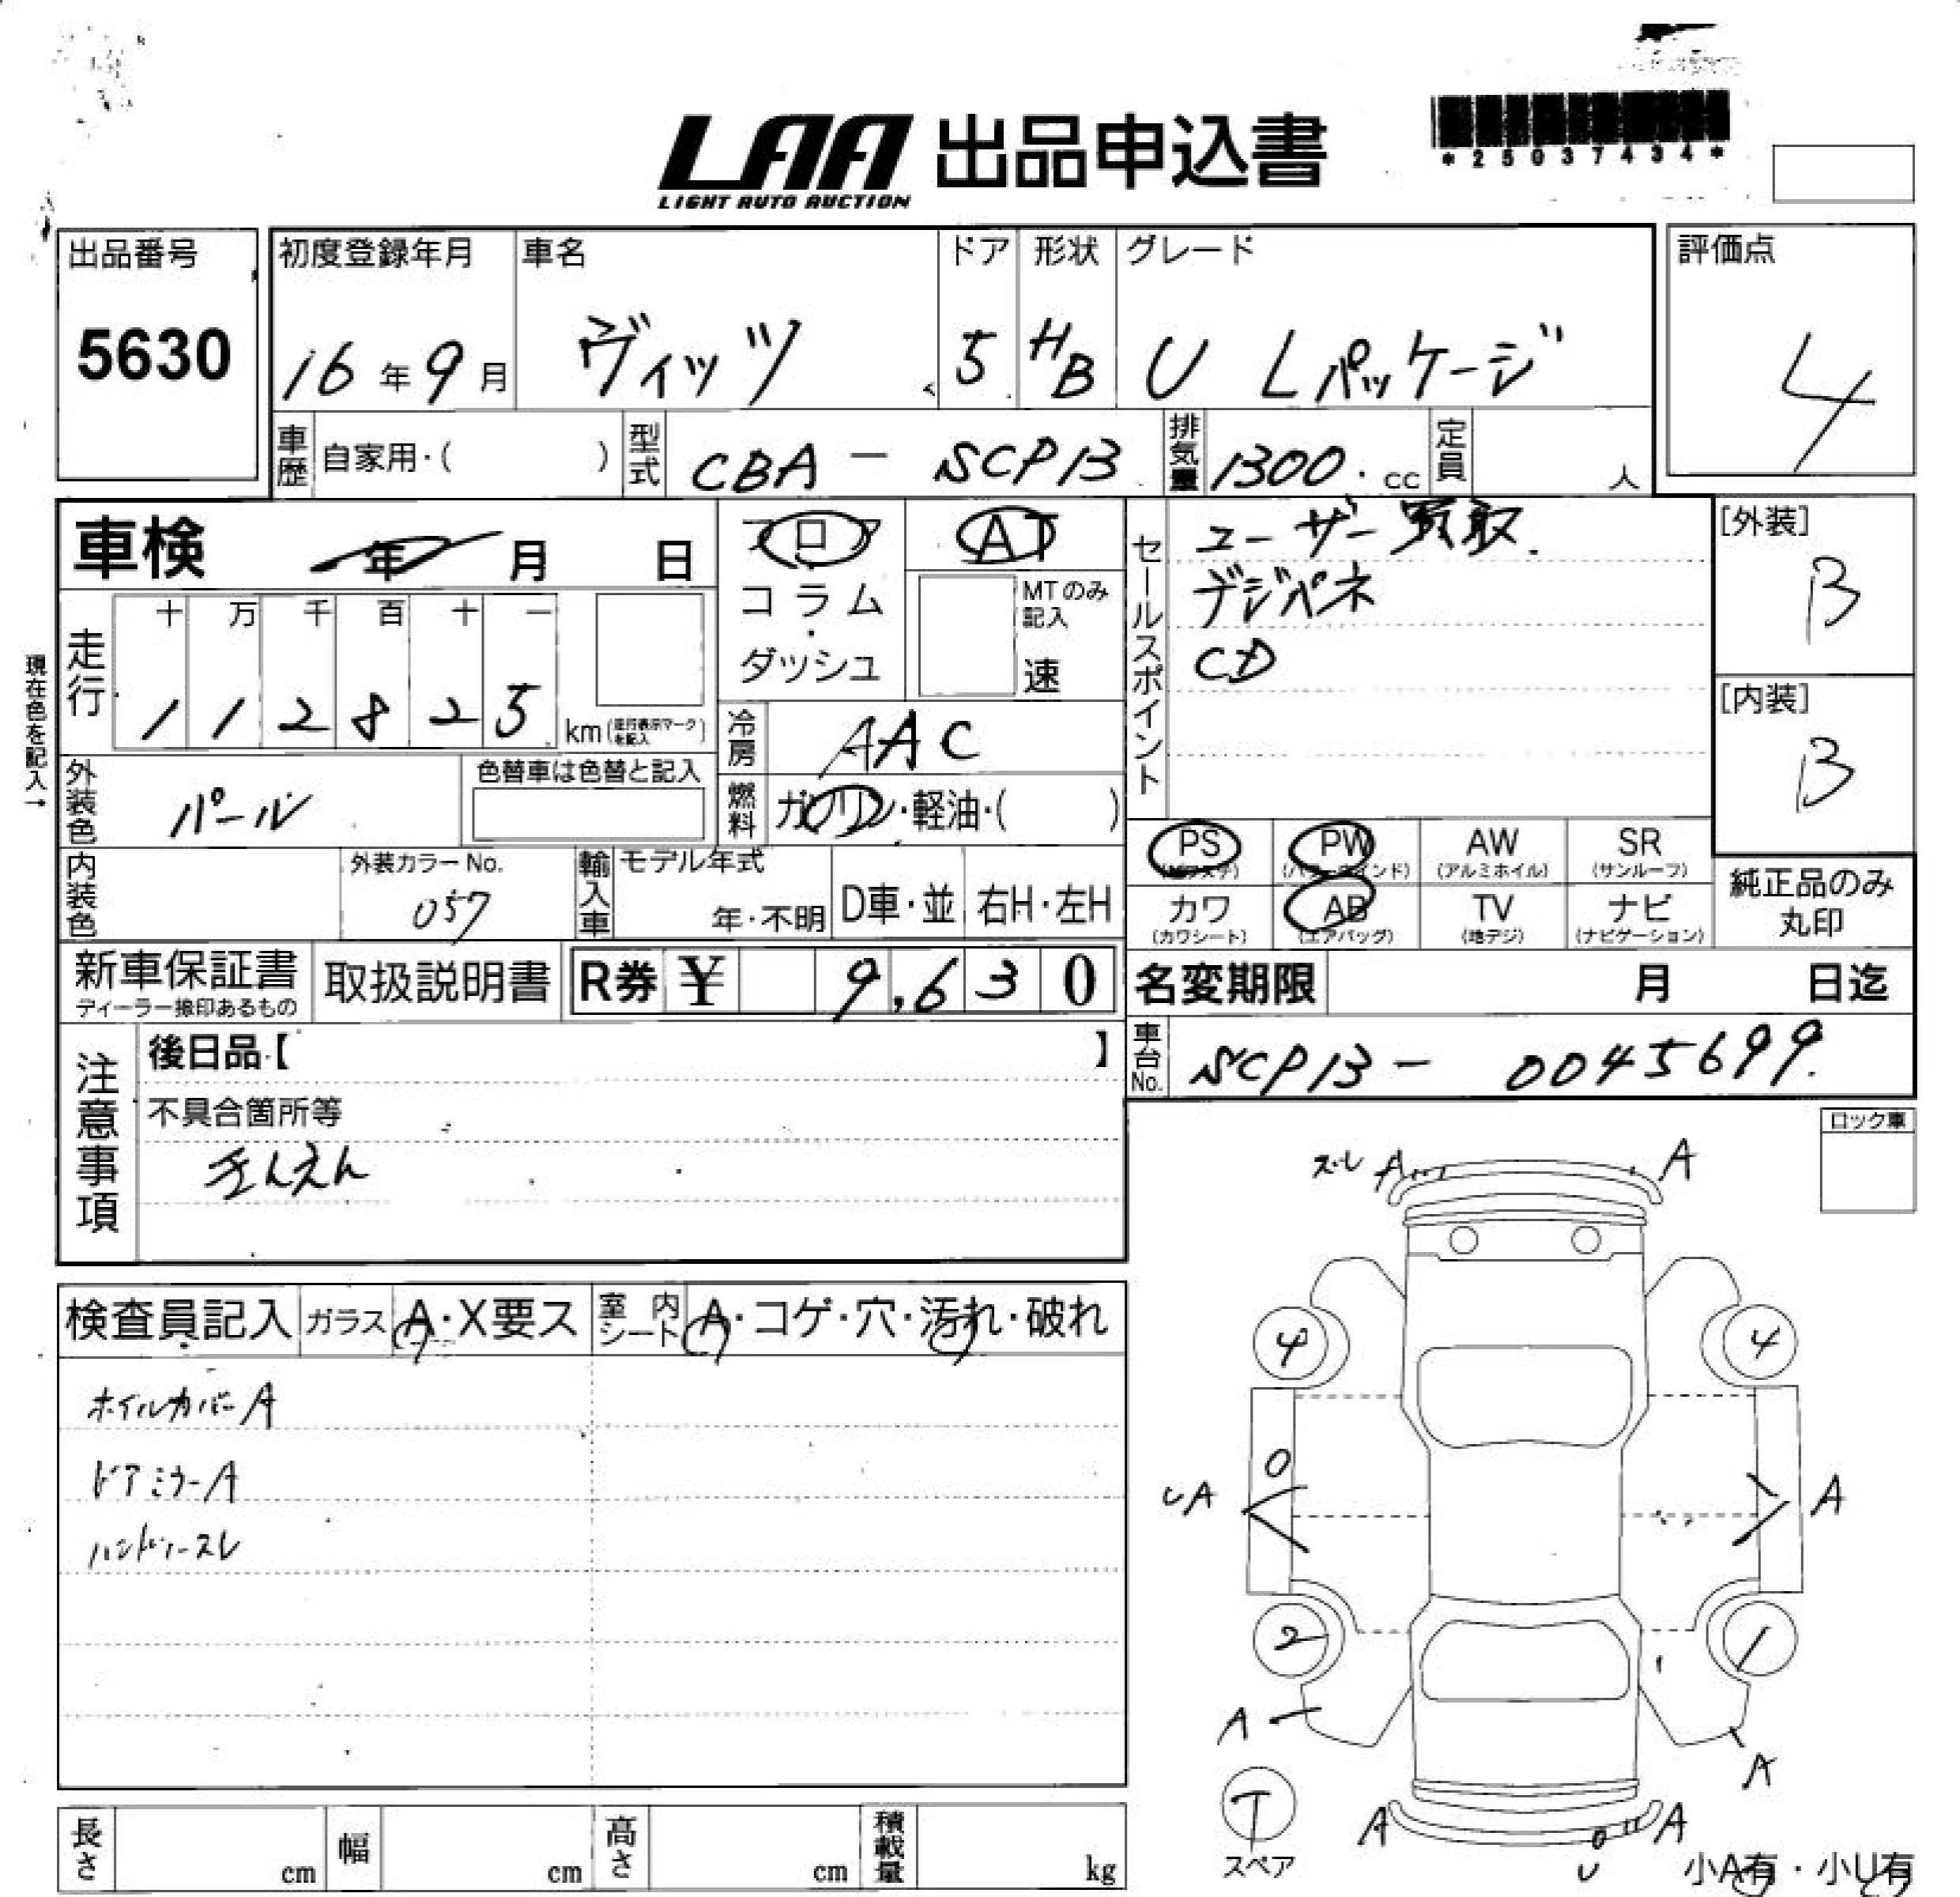 LAA 出品申込書
LIGHT AUTO AUCTION
*25037434*
出品番号 初度登録年月 車名 ドア 形状 グレード 評価点
5630 16年9月 ヴィッツ 5 HB U Lパッケージ 4
車歴 自家用・( ) 型式 CBA - SCP13 排気量 1300. cc 定員 人
車検 年 月 日 フロア AT セールスポイント ユーザー買取. [外装]
コラム・ダッシュ MTのみ記入 速 デジパネ B
走行 十 万 千 百 十 一 CD
現在色を記入→
112825 km(走行表示マークを記入) [内装]
冷房 AAC B
外装色 パール 色替車は色替と記入 燃料 ガソリン・軽油・( )
PS (パワステ) PW (パワーウインド) AW (アルミホイル) SR (サンルーフ)
内装色 外装カラーNo. 057 輸入車 モデル年式 年・不明 D車・並 右H・左H
カワ (カワシート) AB (エアバッグ) TV (地デジ) ナビ (ナビゲーション) 純正品のみ丸印
新車保証書 ディーラー捺印あるもの 取扱説明書 R券 ¥ 9,630 名変期限 月 日迄
注意事項 後日品【 】 車台No. SCP13 - 0045699.
不具合箇所等 ロック車
きんえん
ズレ A A
検査員記入 ガラス A・X要ス 室内シート A・コゲ・穴・汚れ・破れ
4 4
ホイルカバーA
ドアミラーA
A A
ハンドルスレ
2 1
A A
T
スペア
A A
U
長さ cm 幅 cm 高さ cm 積載量 kg
小A有・小U有